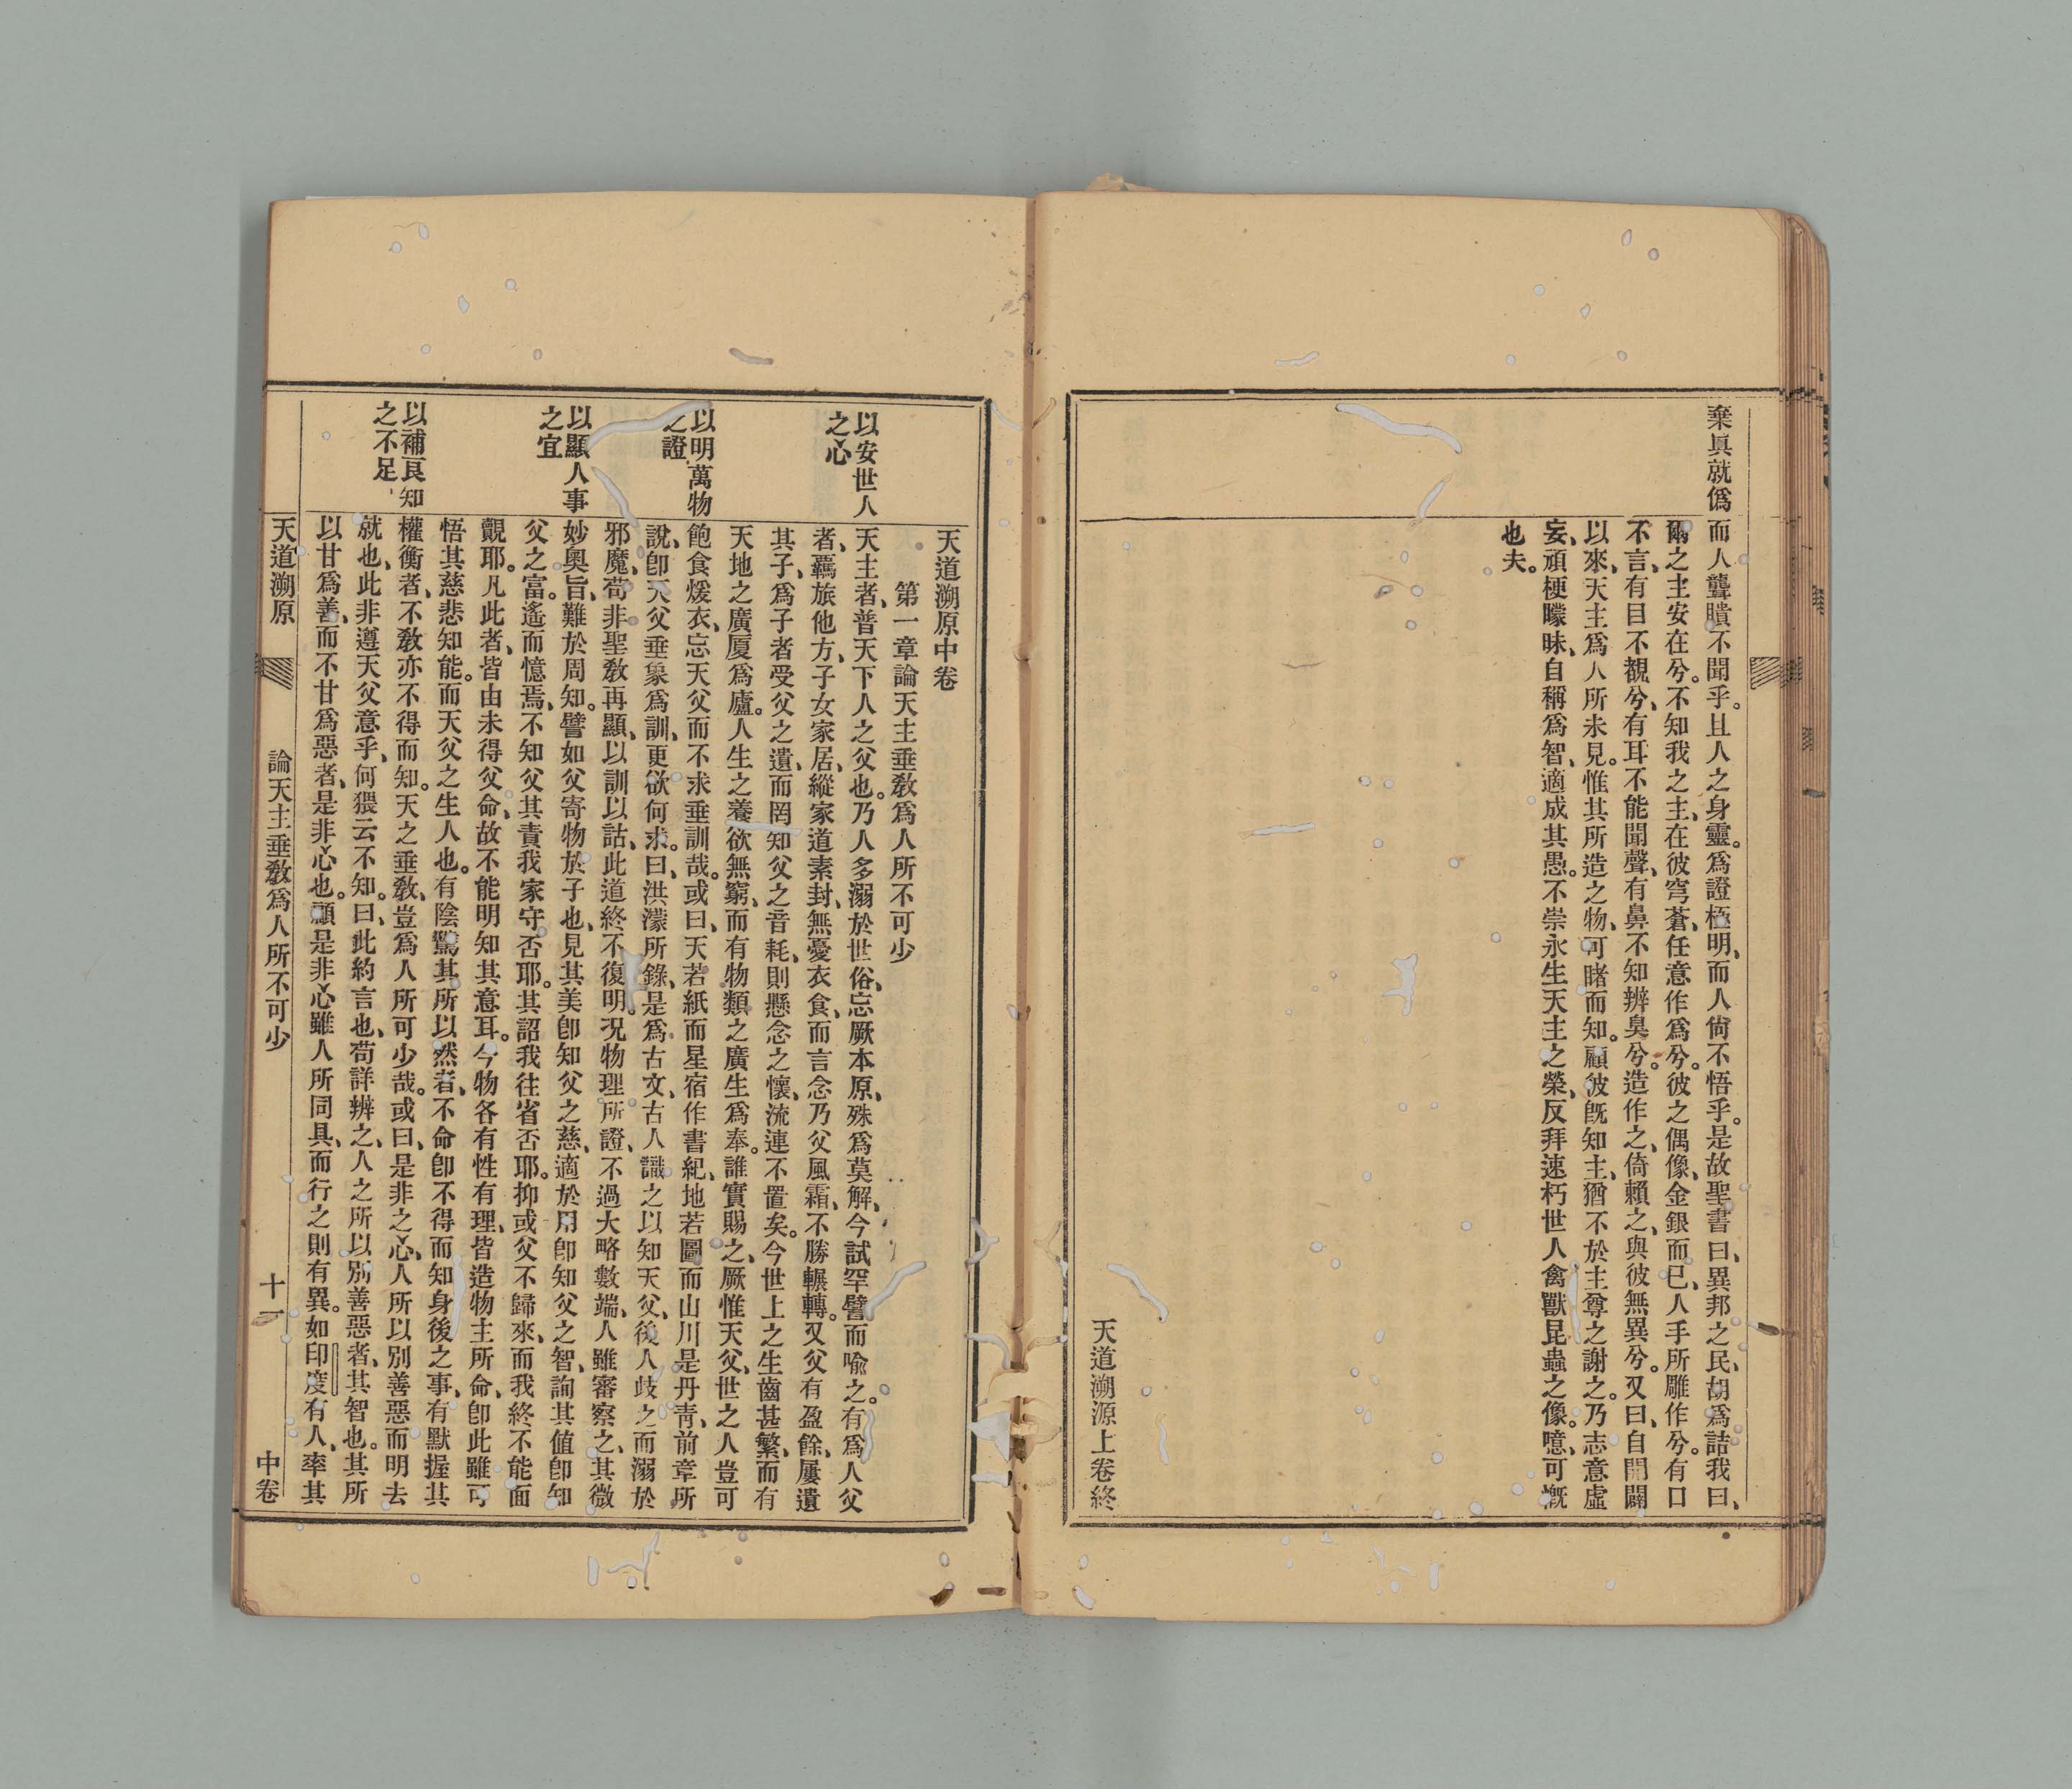 棄眞就僞
而人聾瞶不聞乎。且人之身靈。爲證極明、而人尙不悟乎。是故聖書曰、異邦之民、胡爲詰我曰、
爾之主安在兮。不知我之主、在彼穹蒼、任意作爲兮。彼之偶像、金銀而已、人手所雕作兮。有口
不言、有目不覩兮、有耳不能聞聲、有鼻不知辨臭兮。造作之、倚賴之、與彼無異兮。又曰、自開闢
以來、天主爲人所未見。惟其所造之物、可睹而知。顧彼旣知主、猶不於主尊之謝之。乃志意虛
妄、頑梗矇昧、自稱爲智、適成其愚。不崇永生天主之榮、反拜速朽世人禽獸昆蟲之像。噫、可慨
也夫。
天道溯源上卷終
天道溯原中卷
第一章論天主垂敎爲人所不可少
以安世人
之心
天主者、普天下人之父也。乃人多溺於世俗、忘厥本原、殊爲莫解、今試罕譬而喩之。有爲人父
者、羈旅他方、子女家居、縱家道素封、無憂衣食、而言念乃父風霜、不勝輾轉。又父有盈餘、屢遺
其子、爲子者受父之遺、而罔知父之音耗、則懸念之懷、流連不置矣。今世上之生齒甚繁、而有
天地之廣厦爲廬。人生之養欲無窮、而有物類之廣生爲奉。誰實賜之、厥惟天父、世之人豈可
以明萬物
之證
飽食煖衣、忘天父而不求垂訓哉。或曰、天若紙而星宿作書紀、地若圖而山川是丹靑、前章所
說、卽天父垂象爲訓、更欲何求。曰、洪濛所錄、是爲古文、古人識之以知天父、後人歧之而溺於
邪魔、苟非聖敎再顯、以訓以詁、此道終不復明。况物理所證、不過大略數端、人雖審察之、其微
以顯人事
之宜
妙奧旨、難於周知。譬如父寄物於子也、見其美卽知父之慈、適於用卽知父之智、詢其值卽知
父之富。遙而憶焉、不知父其責我家守否耶。其詔我往省否耶。抑或父不歸來、而我終不能面
覿耶。凡此者、皆由未得父命、故不能明知其意耳。今物各有性有理、皆造物主所命、卽此雖可
悟其慈悲知能。而天父之生人也。有陰騭其所以然者、不命卽不得而知身後之事、有默握其
以補良知
之不足
權衡者、不敎亦不得而知。天之垂敎、豈爲人所可少哉。或曰、是非之心、人所以別善惡而明去
就也、此非遵天父意乎、何猥云不知。曰、此約言也、苟詳辨之、人之所以別善惡者、其智也。其所
以甘爲善、而不甘爲惡者、是非心也。顧是非心雖人所同具、而行之則有異。如印度有人、率其
天道溯原
論天主垂敎爲人所不可少
十一
中卷